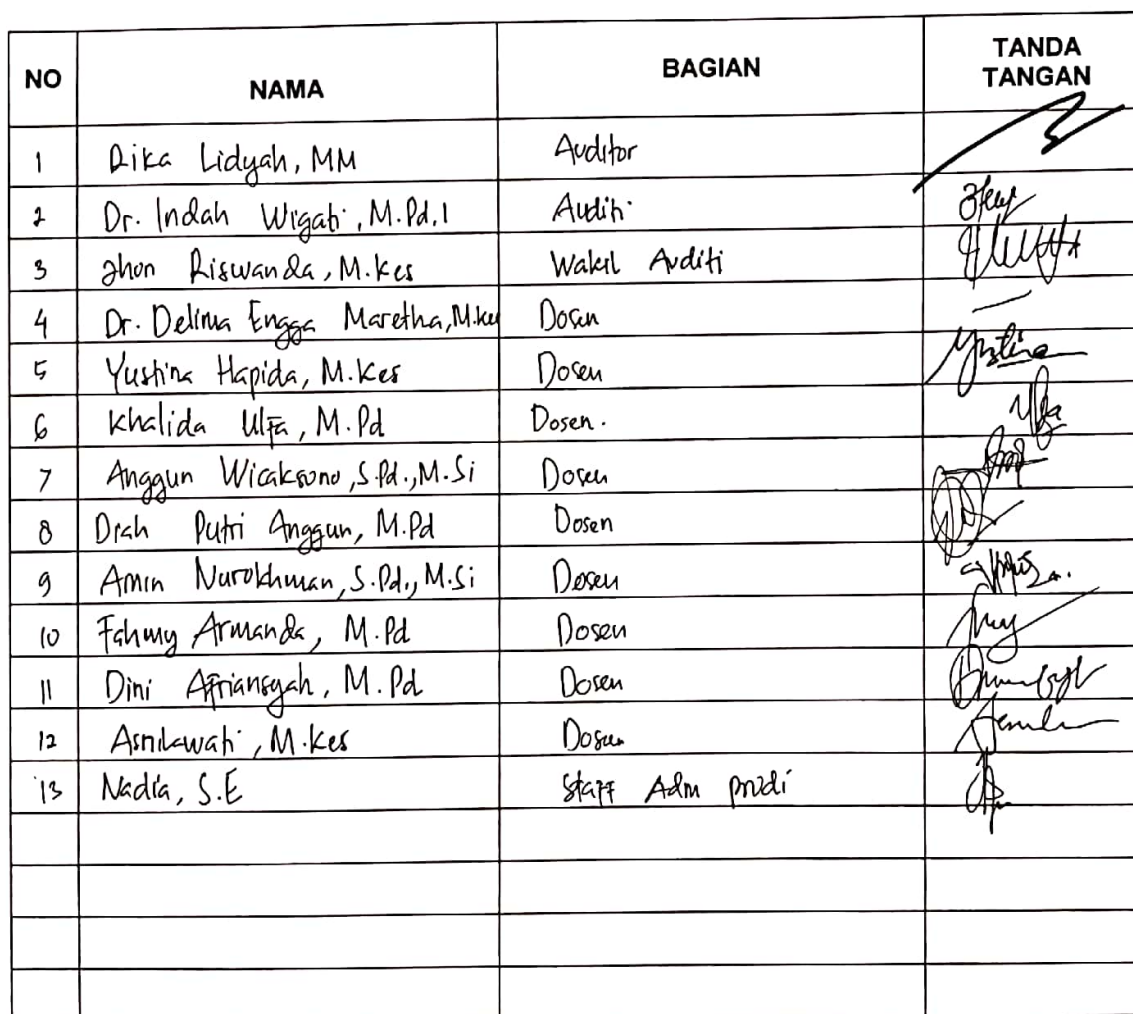 NO NAMA BAGIAN TANDA TANGAN
1 Rika Lidyah, MM Auditor
2 Dr. Indah Wigati, M.Pd.I Auditi
3 Jhon Riswanda, M.Kes Wakil Auditi
4 Dr. Delima Engga Maretha, M.Kes Dosen
5 Yustina Hapida, M.Kes Dosen Yustina
6 Khalida Ulfa, M.Pd Dosen. Ulfa
7 Anggun Wicaksono, S.Pd., M.Si Dosen
8 Diah Putri Anggun, M.Pd Dosen
9 Amin Nurokhman, S.Pd., M.Si Dosen
10 Fahmy Armanda, M.Pd Dosen
11 Dini Afriansyah, M.Pd Dosen
12 Asnilawati, M.Kes Dosen
13 Nadia, S.E Staff Adm prodi